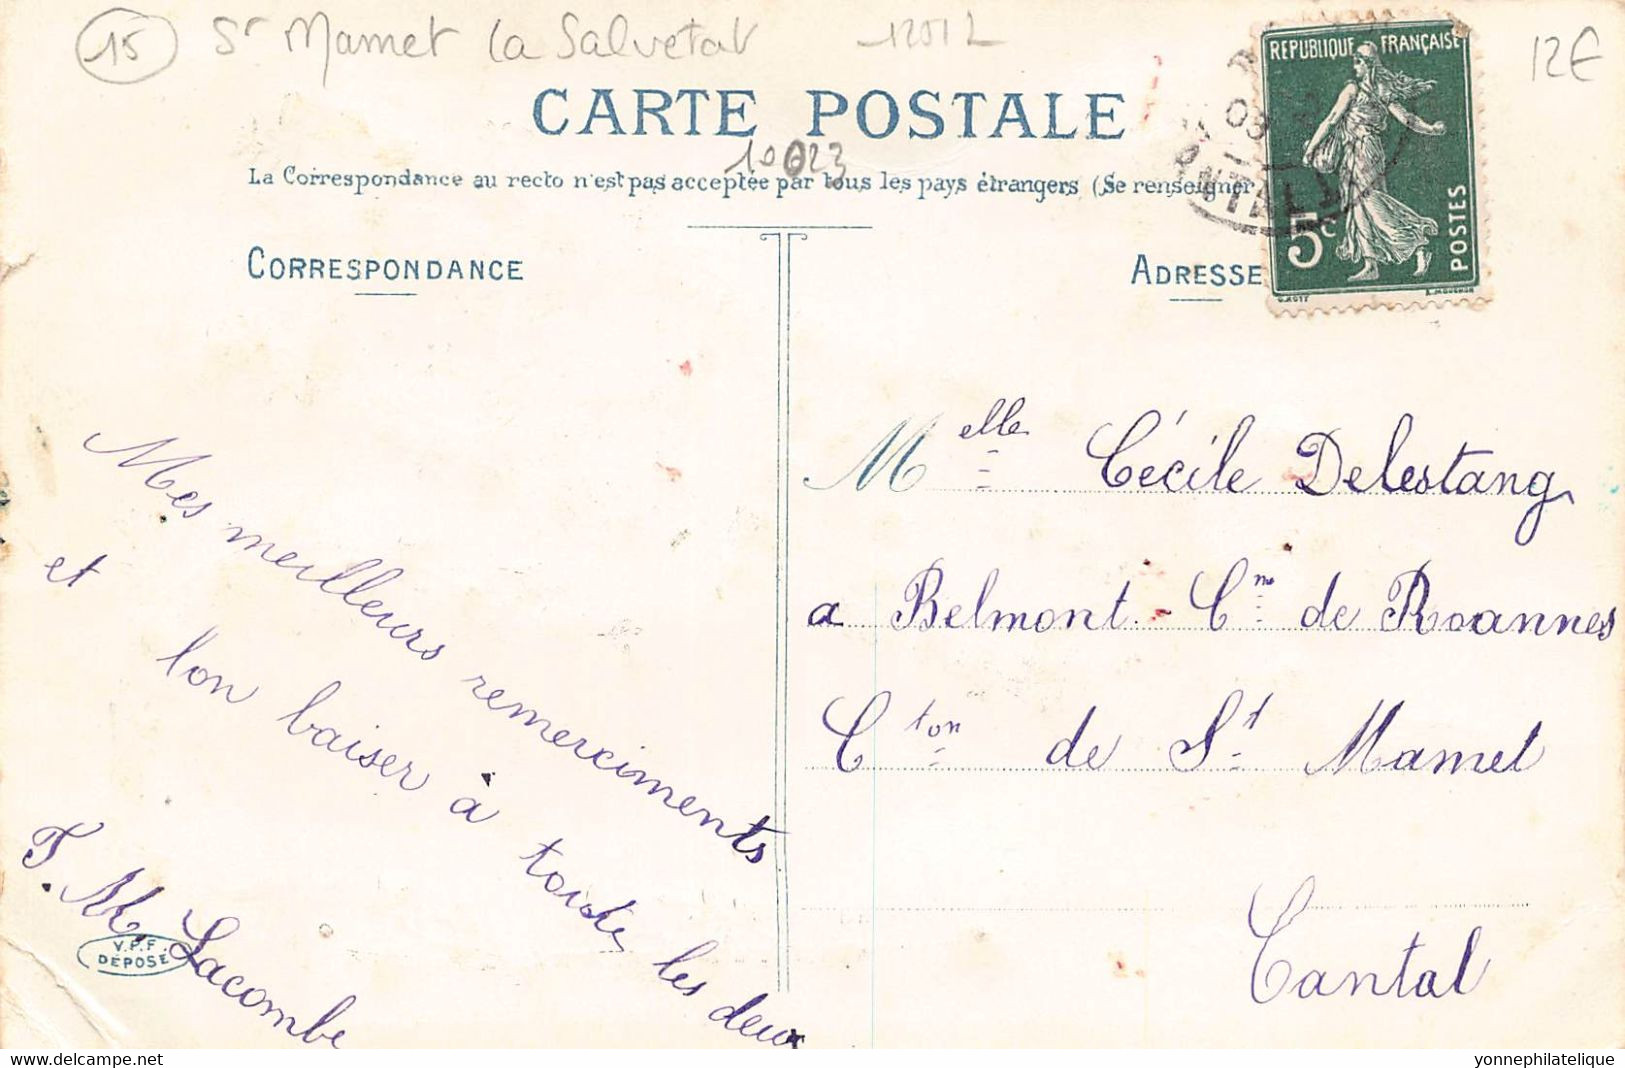 15 St Mamet la Salvetat 12012
12€
CARTE POSTALE
10023
La Correspondance au recto n'est pas acceptée par tous les pays étrangers (Se renseigner
REPUBLIQUE FRANÇAISE
5c
POSTES
CANTAL
CORRESPONDANCE
ADRESSE
Mes meilleurs remerciments
et
bon baiser à toute les deux
T. M. Lacombe
V.P.F.
DÉPOSÉ
Melle Cécile Delestang
a Belmont - Cne de Roannes
Cton de St Mamet
Cantal
delcampe.net
yonnephilatelique